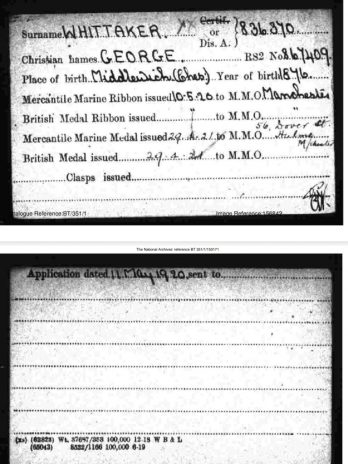 Surname WHITTAKER. Certif. or Dis. A. } 836.370.
Christian names GEORGE. RS2 No. 867409.
Place of birth Middlewich (Ches) Year of birth 1876
Mercantile Marine Ribbon issued 10.5.20 to M.M.O. Manchester
British Medal Ribbon issued " to M.M.O. "
56, Dover St
Mercantile Marine Medal issued 29.4.21 to M.M.O. Hulme
M/chester
British Medal issued 29.4.21 to M.M.O.
Clasps issued
Catalogue Reference:BT/351/1 Image Reference:
The National Archives' reference BT 351/1/
Application dated 11 May 1920. sent to
(62823) Wt. 37697/353 100,000 12-18 W B & L
(65043) 8532/1166 100,000 6-19